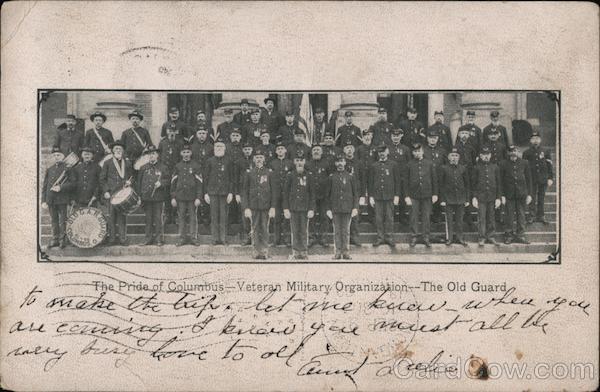 The Pride of Columbus—Veteran Military Organization—The Old Guard
to make the trip. let me know when you
are coming. I know you must all be
very busy love to all Aunt
CardCow.com